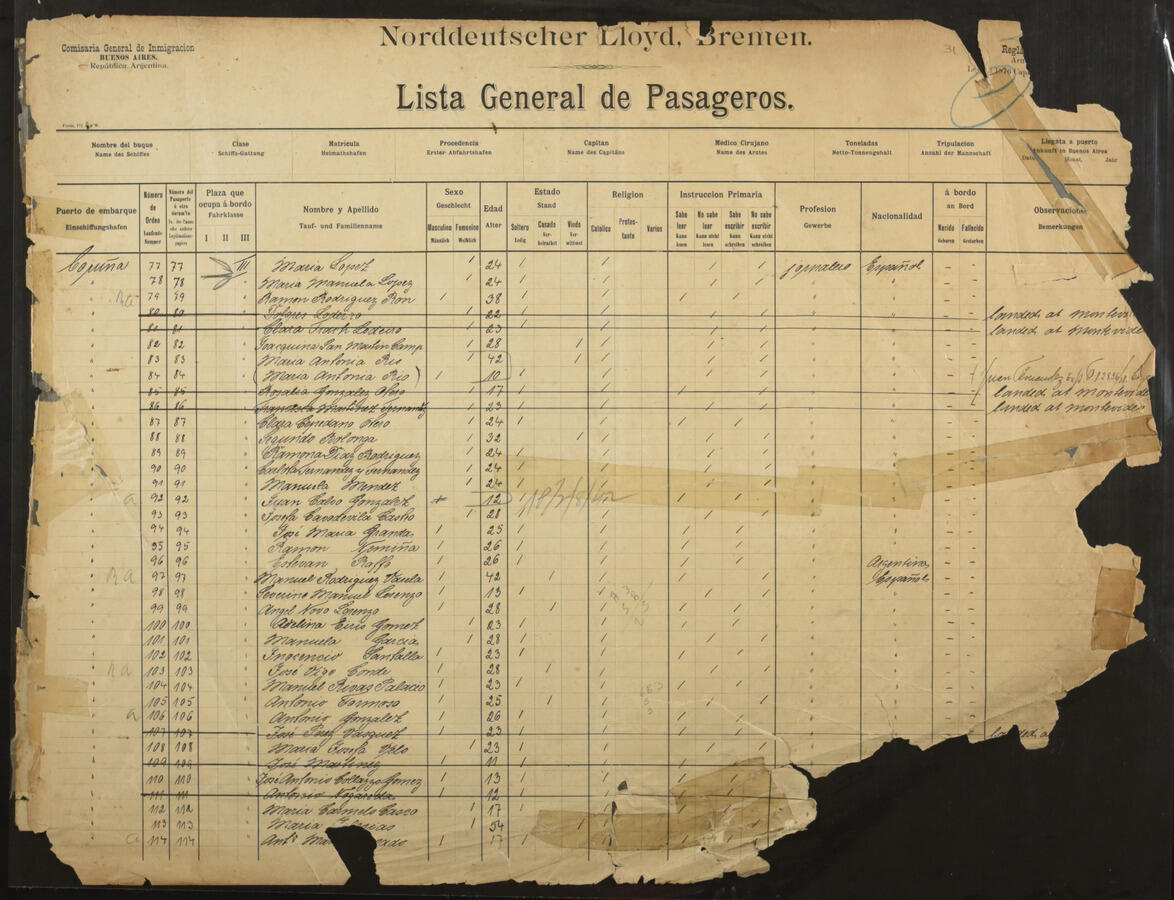 Comisaria General de Inmigracion
BUENOS AIRES.
República Argentina.
Norddeutscher Lloyd, Bremen.
Lista General de Pasageros.
31
Nombre del buque Clase Matricula Procedencia Capitan Médico Cirujano Toneladas Tripulacion Llegata a puerto
Name des Schiffes Schiffs-Gattung Heimathshafen Erster Abfahrtshafen Name des Capitäns Name des Arztes Netto-Tonnengehalt Anzahl der Mannschaft Ankunft in Buenos Aires
Monat. Jahr
Puerto de embarque
Einschiffungshafen
Número de Orden
Laufende Nummer
Plaza que ocupa á bordo
Fahrklasse
I II III
Nombre y Apellido
Tauf- und Familienname
Sexo
Geschlecht
Masculino Femenino
Männlich Weiblich
Edad
Alter
Estado
Stand
Soltero Casado Viudo
Ledig Verheiratet Verwittwet
Religion
Catolico Protestante Varios
Instruccion Primaria
Sabe leer No sabe leer Sabe escribir No sabe escribir
Kann lesen Kann nicht lesen Kann schreiben Kann nicht schreiben
Profesion
Gewerbe
Nacionalidad
á bordo
an Bord
Nacido Fallecido
Geboren Gestorben
Observaciones
Bemerkungen
Coruña 77 77 III Maria Lopez 24 jornalero Español
78 78 Maria Manuela Lopez 24
79 79 Ramon Rodriguez Ron 38
80 80 Dolores Lodeiro 22 landed at Montevid
81 81 Clara Lodeiro 23 landed at Montevide
82 82 Joacquina San Martin Camp 28
83 83 Maria Antonia Rio 42
84 84 (Maria Antonia Rio) 10
85 85 Rosalia Gonzalez Otero 17 landed at Montevide
86 86 Martinez Fernandez 23 landed at Montevideo
87 87 Clara Cerredano Otero 24
88 88 Segundo 32
89 89 Ramona Diaz Rodriguez 24
90 90 Carlota Fernandez y Fernandez 24
91 91 Manuela Mendez 24
a 92 92 Juan Calvo Gonzalez 12
93 93 Josefa Castro 28
94 94 José Maria Granda 25
95 95 Ramon Nemiña 26
96 96 Estevan Raffo 26 Argentina
R a 97 97 Manuel Rodriguez Varela 42 Español
98 98 Severino Manuel Lorenzo 13
99 99 Angel Novo Lorenzo 28
100 100 Avelina Gomez 23
101 101 Manuela Garcia 28
102 102 Inocencio Santalla 23
R a 103 103 José Vigo Conde 28
104 104 Manuel Rivas Palacio 23
105 105 Antonio Formoso 25
a 106 106 Antonio Gonzalez 26
107 107 José Perez Vasquez 23 landed a
108 108 Maria Josefa Velo 23
109 109 José Martinez 11
110 110 José Antonio Collazzo Gomez 13
111 111 Antonio 12
112 112 Maria Carmelo Casco 17
113 113 Maria 54
a 114 114 Ant° 17